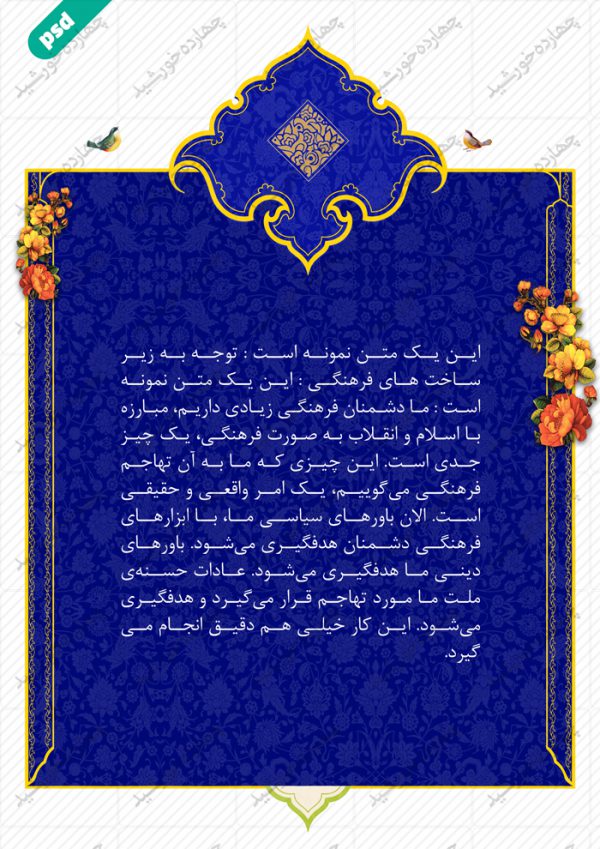 psd
این یک متن نمونه است : توجه به زیر
ساخت های فرهنگی : این یک متن نمونه
است : ما دشمنان فرهنگی زیادی داریم، مبارزه
با اسلام و انقلاب به صورت فرهنگی، یک چیز
جدی است. این چیزی که ما به آن تهاجم
فرهنگی می‌گوییم، یک امر واقعی و حقیقی
است. الان باورهای سیاسی ما، با ابزارهای
فرهنگی دشمنان هدفگیری می‌شود. باورهای
دینی ما هدفگیری می‌شود. عادات حسنه‌ی
ملت ما مورد تهاجم قرار می‌گیرد و هدفگیری
می‌شود. این کار خیلی هم دقیق انجام می
گیرد.
چهارده خورشید